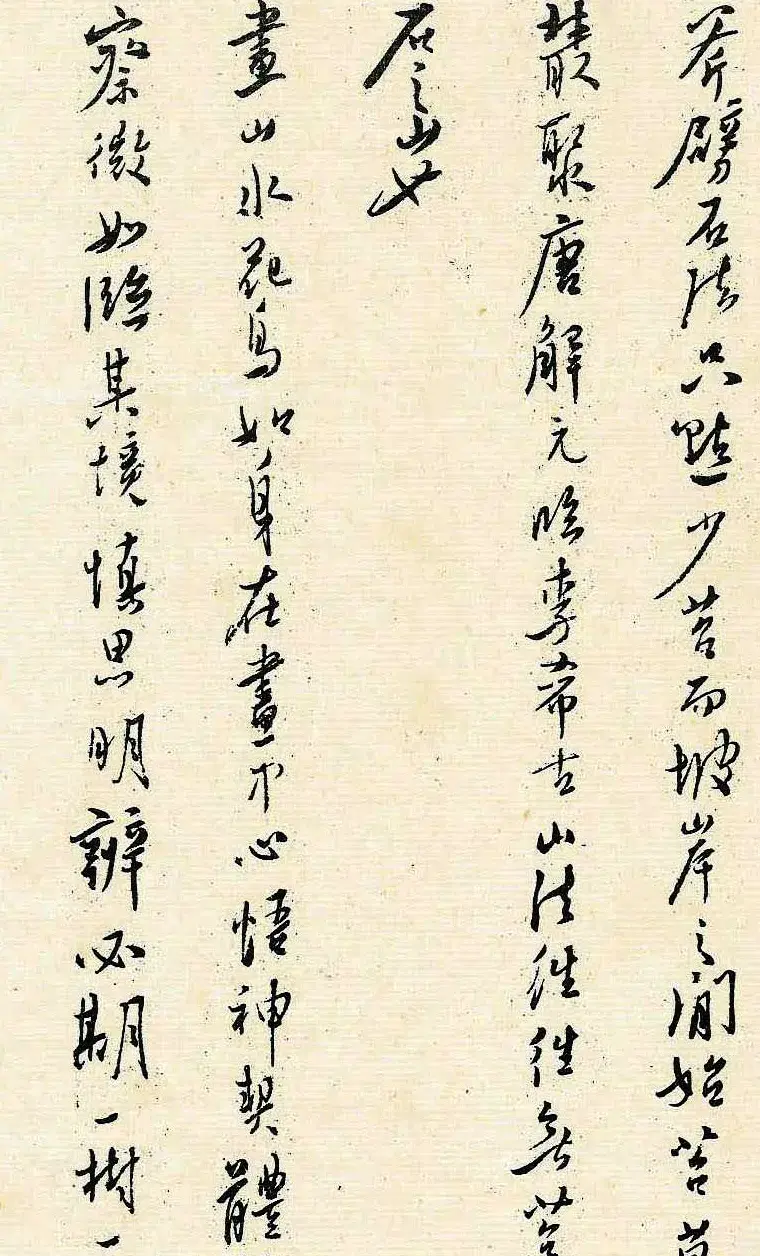 斧劈石法只點少苔而坡岸之間始苔草
叢聚唐解元臨李希古山法往往無苔
石之山也
畫山水花鳥如身在畫中心悟神契體
察微如臨其境慎思明辨必期一樹一